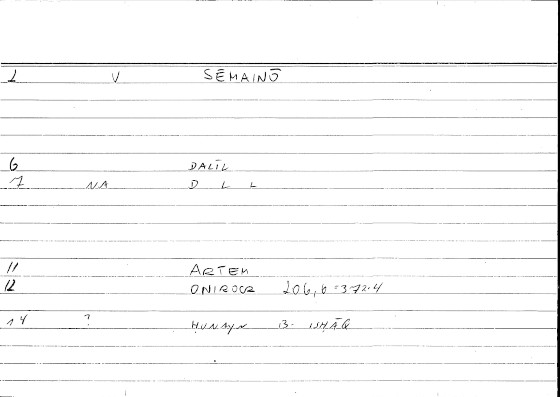 1 V SĒMAINŌ
6 DALĪL
7 NA D L L
11 ARTEM
12 ONIROCR 206,6 = 372.4
14 ? ḤUNAYN B. ISḤĀQ